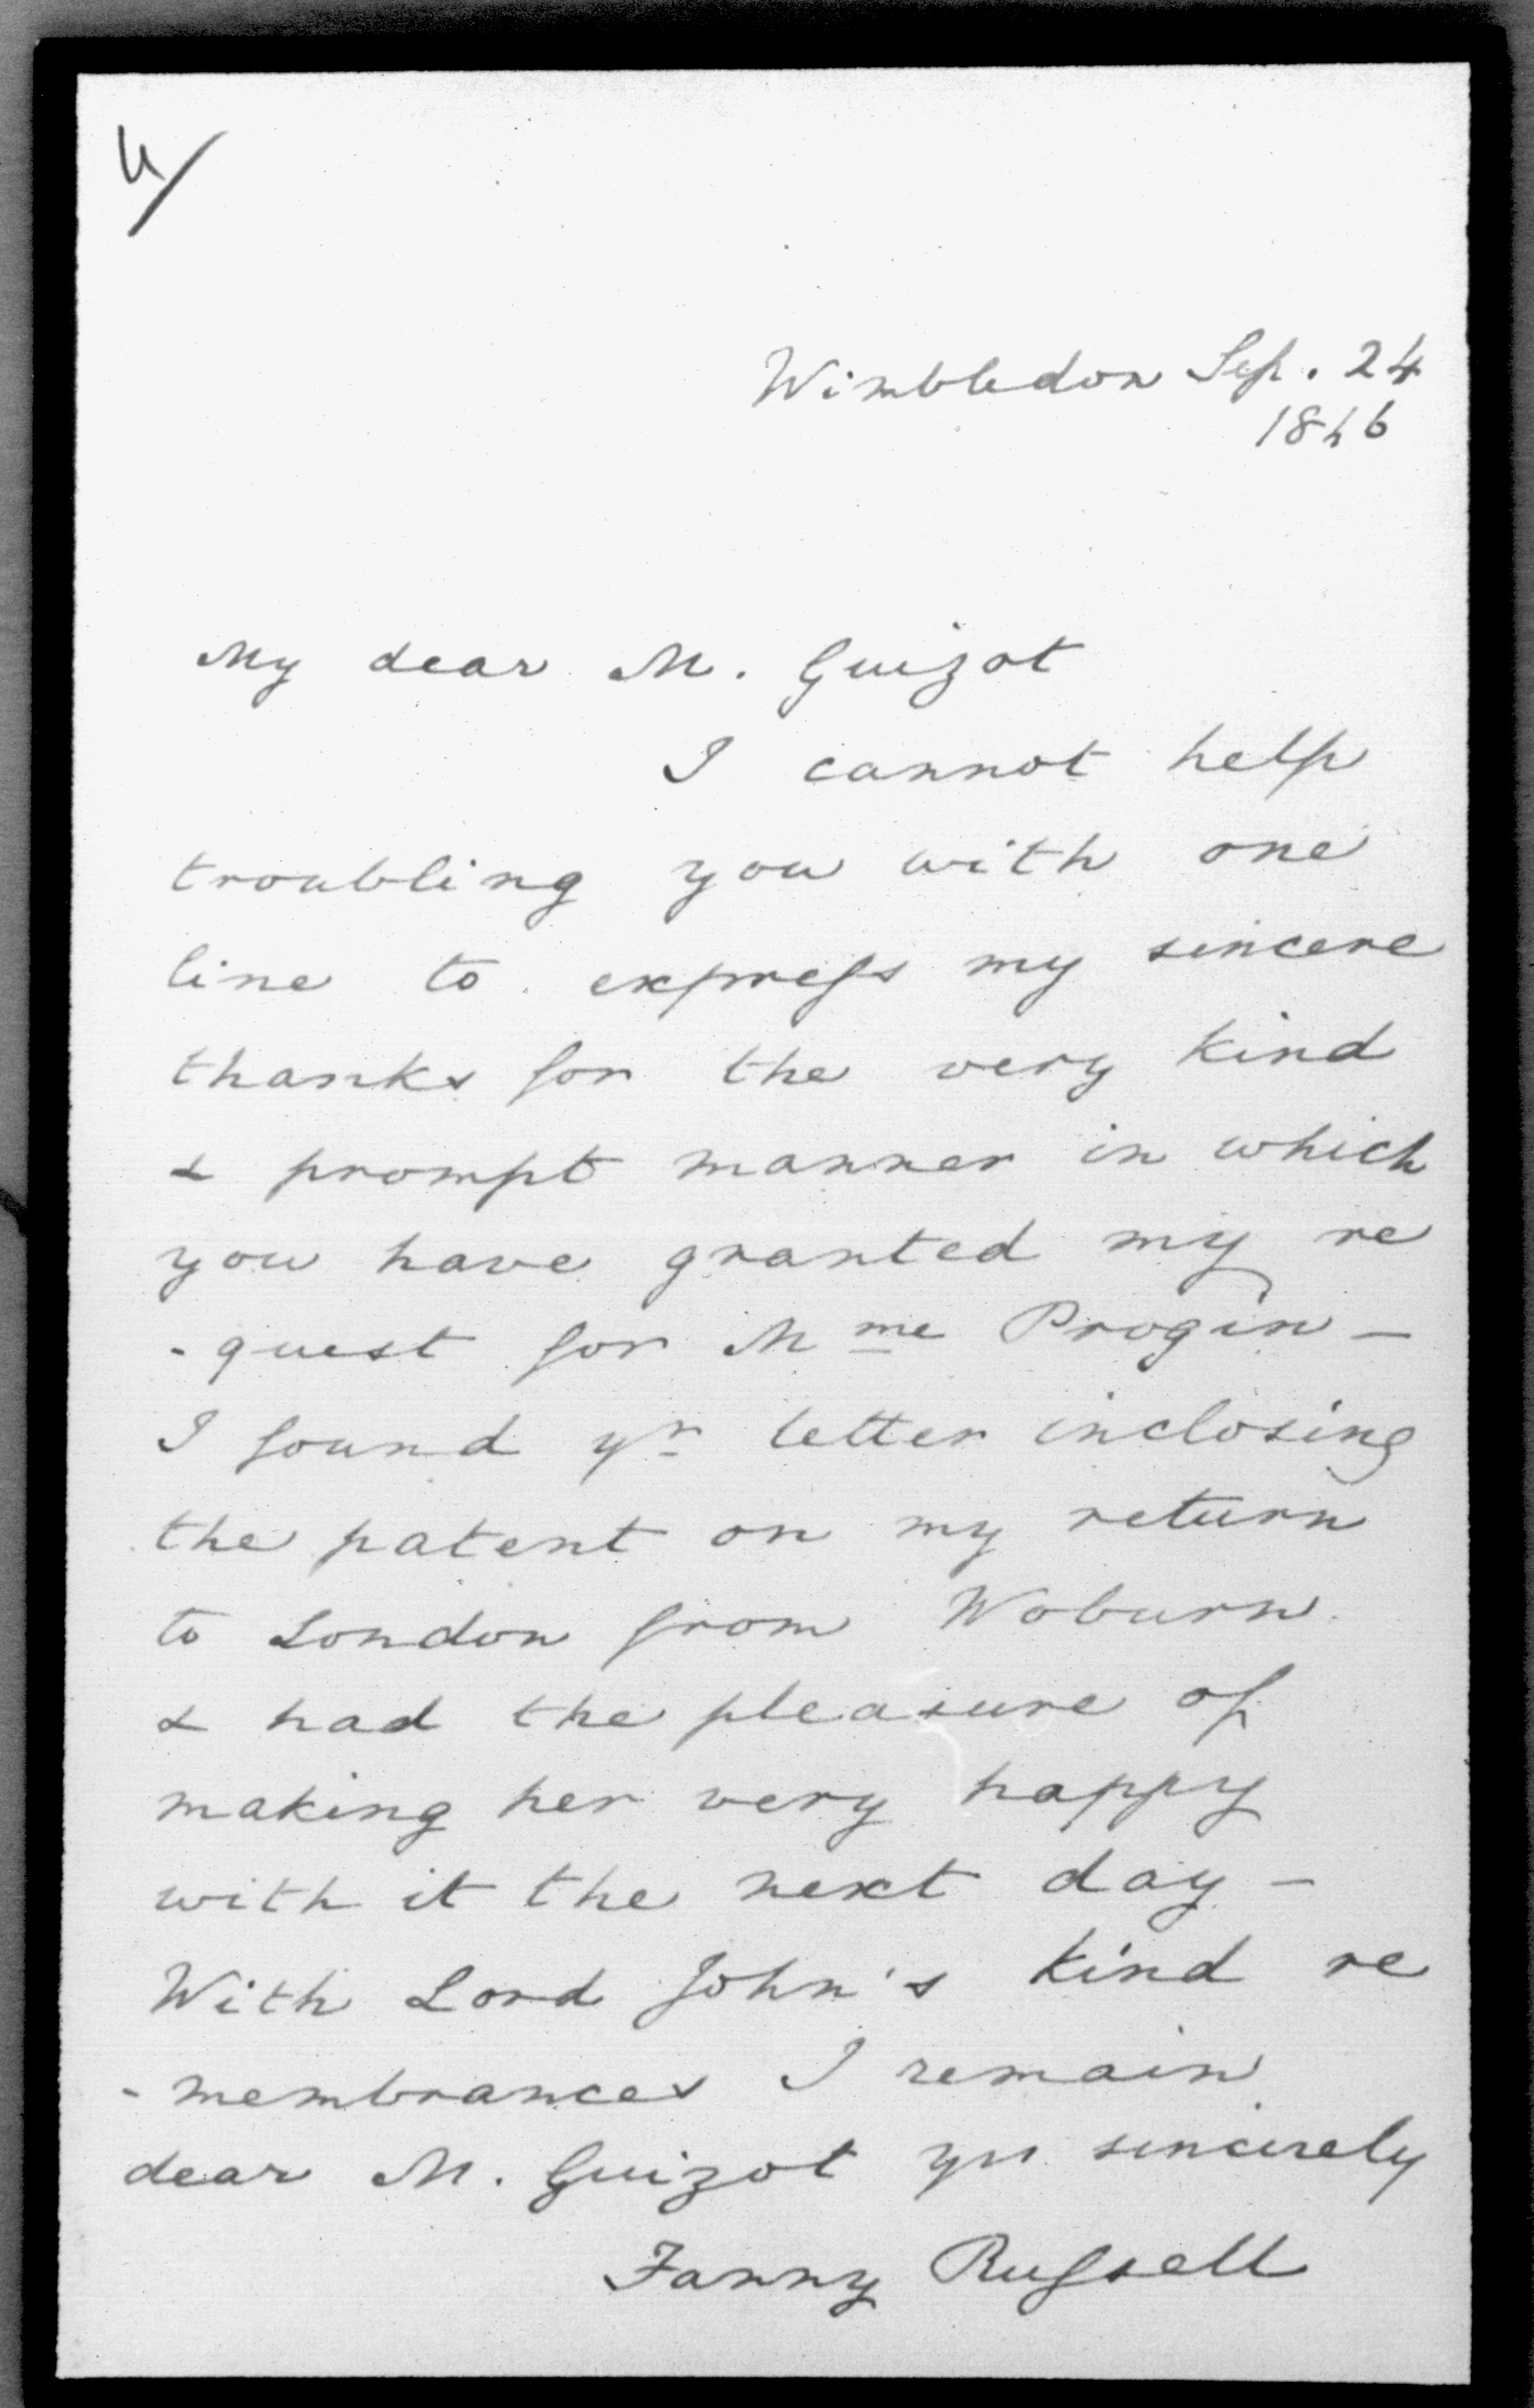 4/
Wimbledon Sep. 24
1846
My dear M. Guizot
I cannot help
troubling you with one
line to express my sincere
thanks for the very kind
& prompt manner in which
you have granted my re
-quest for Mme Progin —
I found yr letter inclosing
the patent on my return
to London from Woburn
& had the pleasure of
making her very happy
with it the next day —
With Lord John's kind re
-membrances I remain
dear M. Guizot yrs sincerely
Fanny Russell